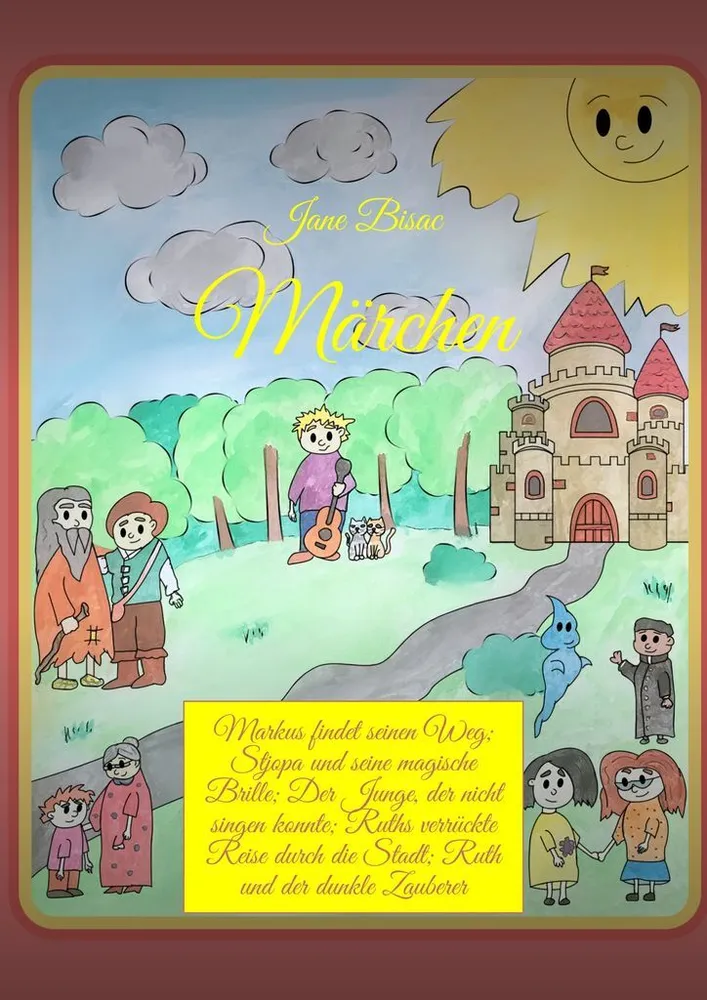 Jane Bisac
Märchen
Markus findet seinen Weg;
Stjopa und seine magische
Brille; Der Junge, der nicht
singen konnte; Ruths verrückte
Reise durch die Stadt; Ruth
und der dunkle Zauberer